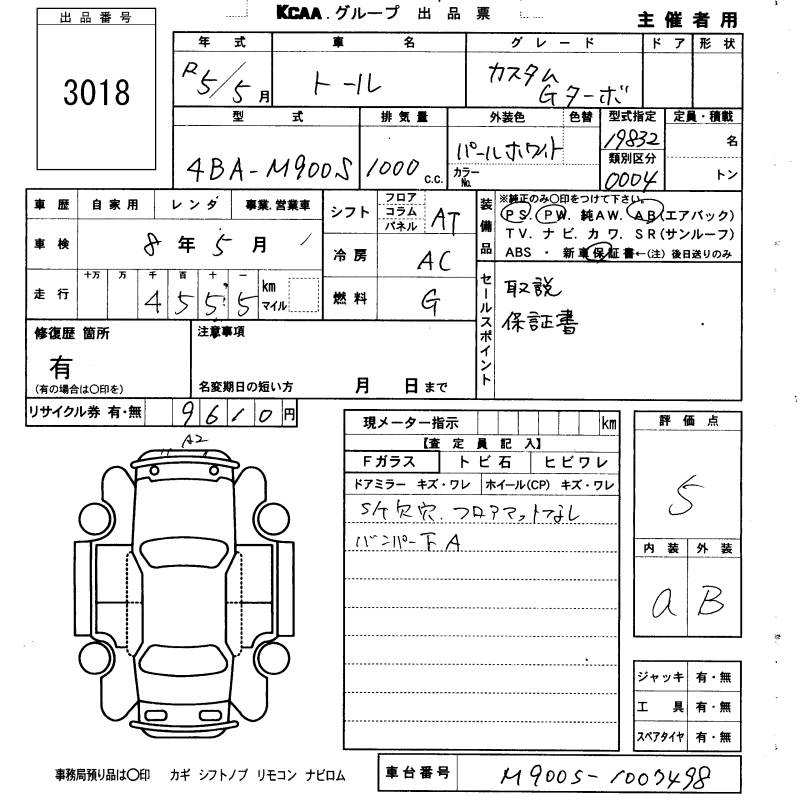 KCAA.グループ 出品票
主催者用
出品番号
3018
年式 車名 グレード ドア 形状
R5/5月 トール カスタム
Gターボ
型式 排気量 外装色 色替 型式指定 定員・積載
4BA-M900S 1000 c.c. パールホワイト カラーNo. 19832 名
類別区分
0004 トン
車歴 自家用 レンタ 事業.営業車
車検 8年5月
走行 十万 万 千 百 十 一
4555 km マイル
シフト フロア コラム パネル AT
冷房 AC
燃料 G
装備品 ※純正のみ〇印をつけて下さい。
PS. PW. 純AW. AB(エアバック)
TV. ナビ. カワ. SR(サンルーフ)
ABS ・ 新車保証書←(注) 後日送りのみ
セールスポイント
取説
保証書
修復歴 箇所
有
(有の場合は〇印を)
注意事項
名変期日の短い方 月 日まで
リサイクル券 有・無 9610円
現メーター指示 km
【査定員記入】
Fガラス トビ石 ヒビワレ
ドアミラー キズ・ワレ ホイール(CP) キズ・ワレ
Sケ欠穴. フロアマットなし
バンパー下A
A2
評価点
5
内装 外装
a B
ジャッキ 有・無
工具 有・無
スペアタイヤ 有・無
事務局預り品は〇印 カギ シフトノブ リモコン ナビロム
車台番号 M900S-1007498